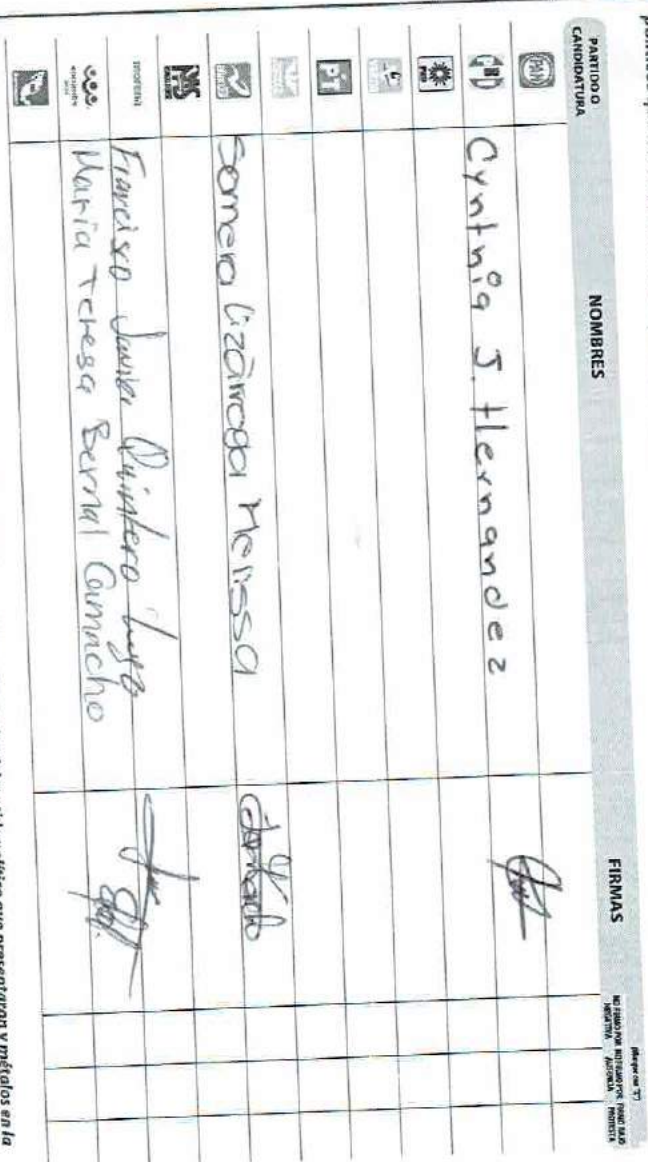 PARTIDO O CANDIDATURA
NOMBRES
FIRMAS
(Marque con "X")
NO FIRMÓ POR NEGATIVA
NO FIRMÓ POR AUSENCIA
FIRMÓ BAJO PROTESTA
PAN
PRI
Cynthia J. Hernandez
PRD
PT
Somera Lizárraga Melissa
PAS
morena
Francisco Javier Quintero
encuentro social
María Teresa Bernal Camacho
político que presentaron y métalos en la